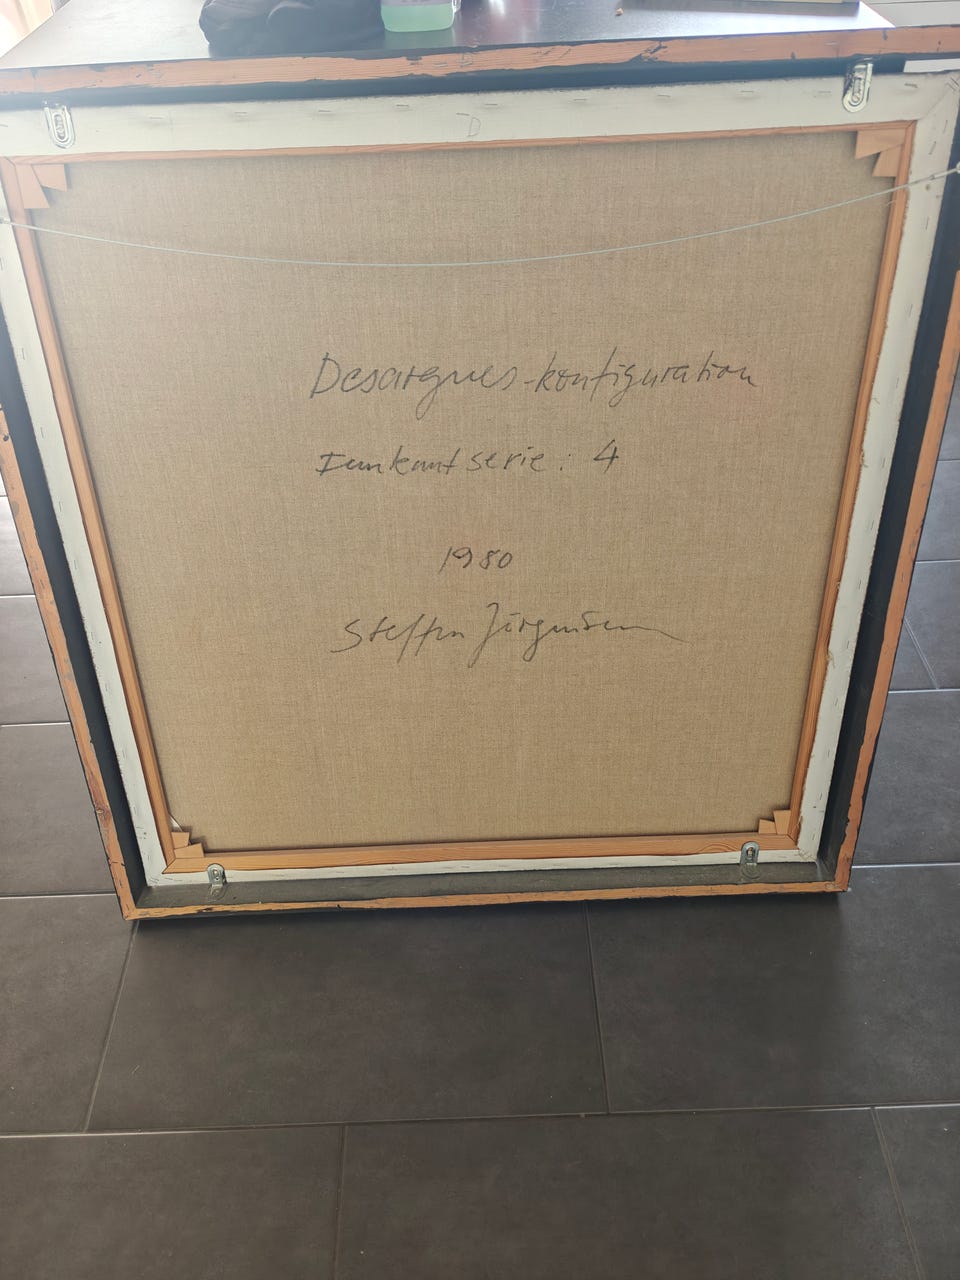 D
Desargues-konfiguration
serie: 4
1980
Steffen Jörgensen